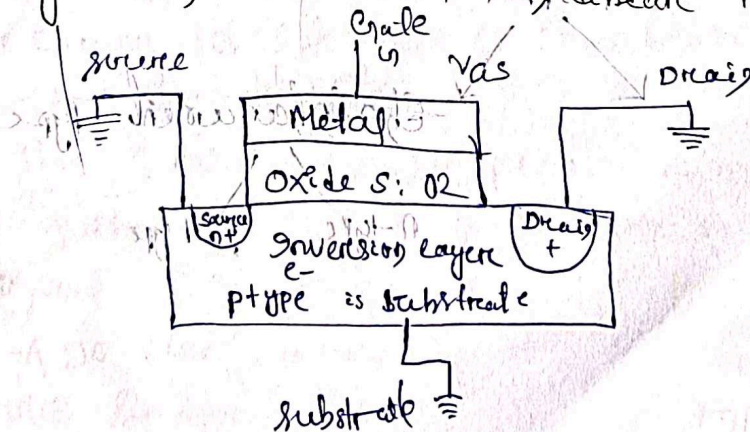 Gate
source
VGS
Drain
Metal
Oxide Si O2
Source
n+
Drain
+
Inversion layere
e-
p type is substrate
substrate